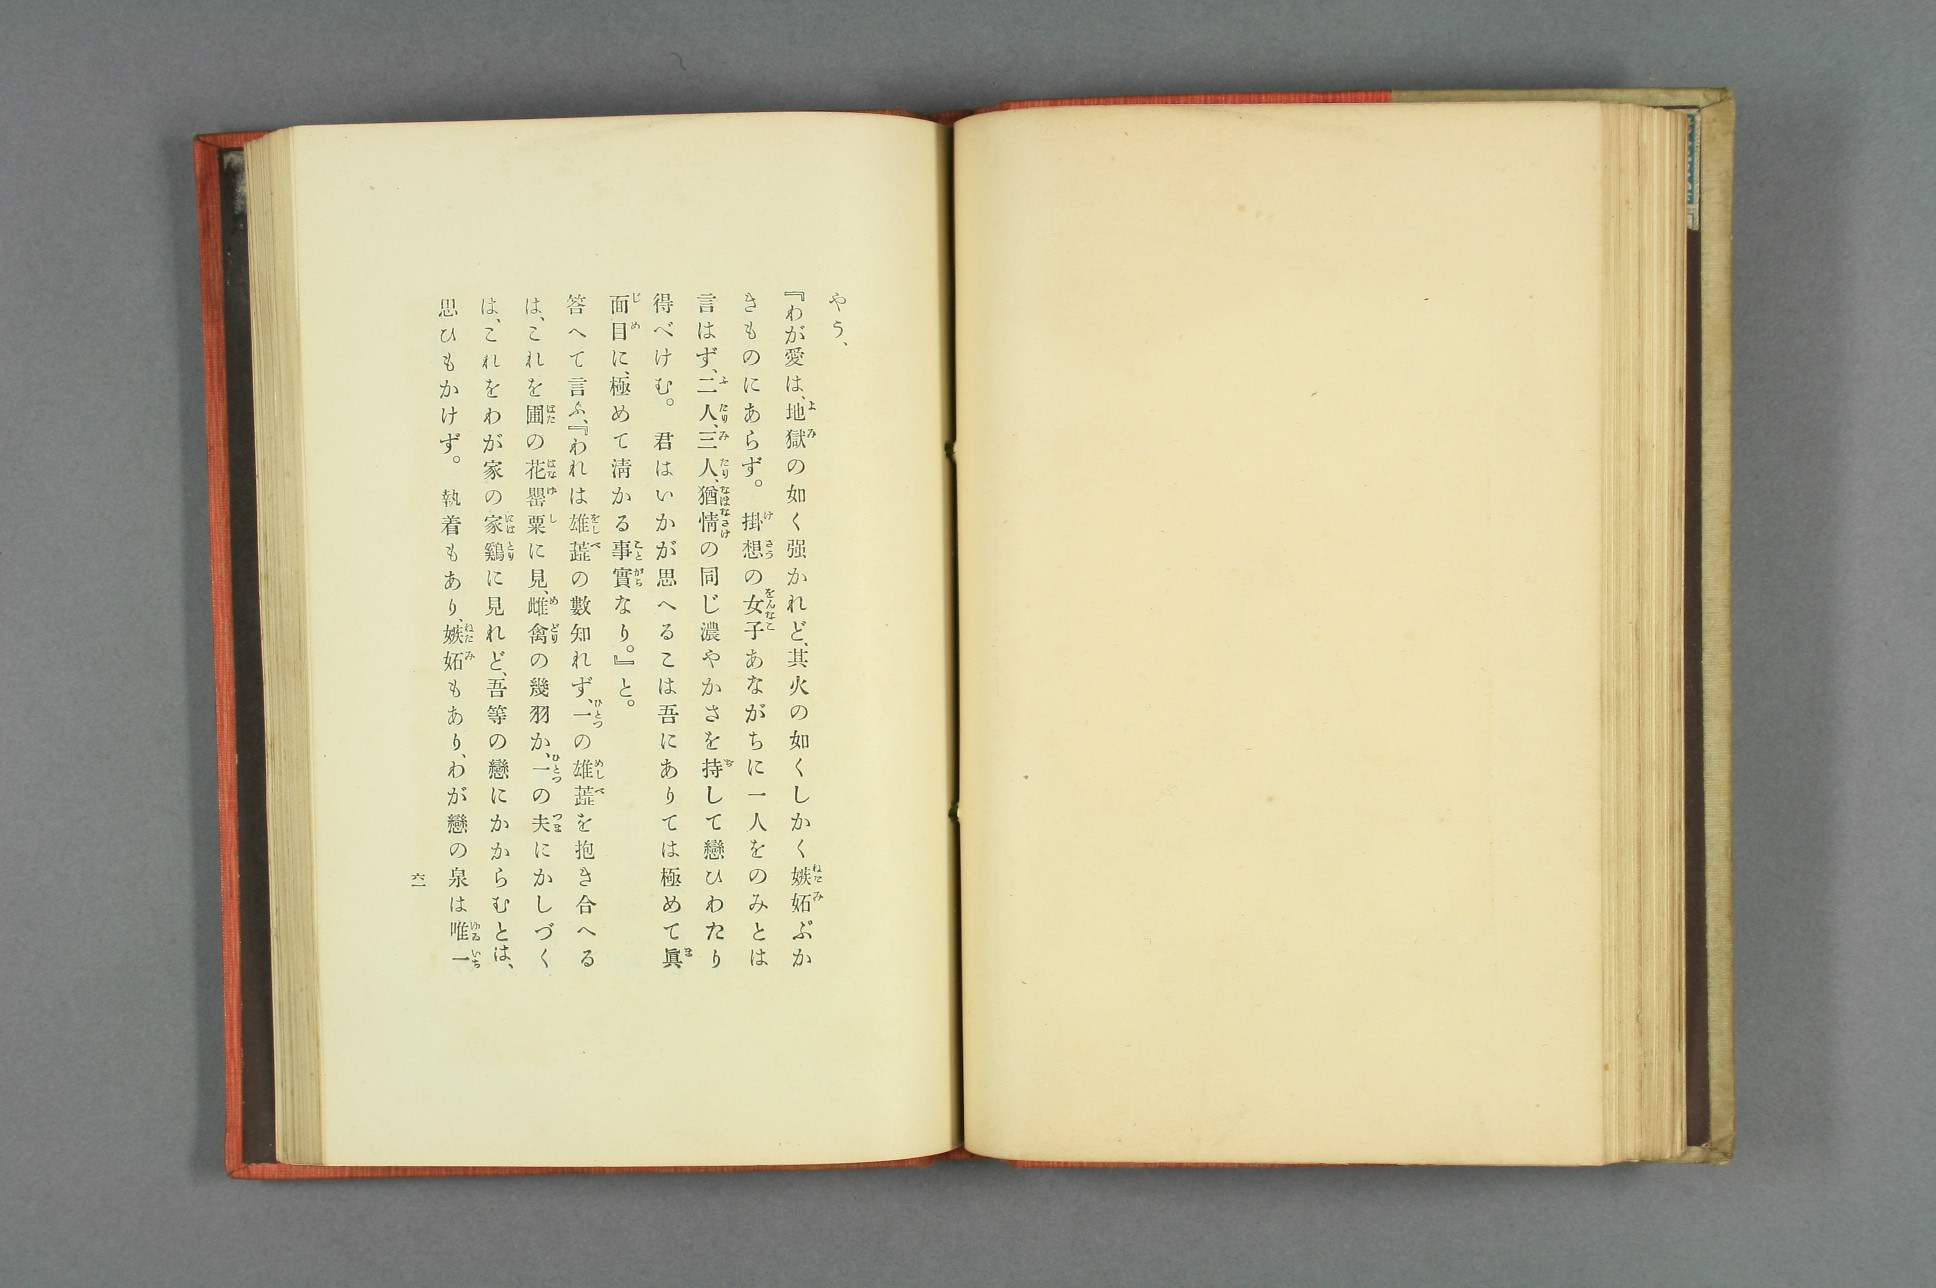 やう、
『わが愛は、地獄の如く强かれど、其火の如くしかく嫉妬ぶか
きものにあらず。掛想の女子あながちに一人をのみとは
言はず、二人、三人、猶情の同じ濃やかさを持して戀ひわたり
得べけむ。君はいかが思へるこは吾にありては極めて眞
面目に、極めて淸かる事實なり。』と。
答へて言ふ、『われは雄蕋の數知れず、一の雄蕋を抱き合へる
は、これを圃の花罌粟に見、雌禽の幾羽か、一の夫にかしづく
は、これをわが家の家鷄に見れど、吾等の戀にかからむとは、
思ひもかけず。執着もあり、嫉妬もあり、わが戀の泉は唯一
六一